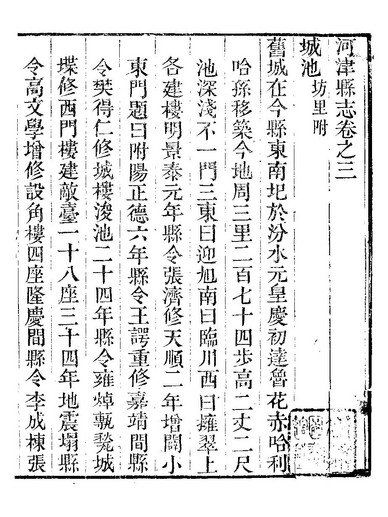 河津縣志卷之三
城池 坊里附
舊城在今縣東南圮於汾水元皇慶初達魯花赤哈利
哈孫移築今地周三里二百七十四步高二丈二尺
池深淺不一門三東曰迎旭南曰臨川西曰擁翠上
各建樓明景泰元年縣令張濟修天順二年增闢小
東門題曰附陽正德六年縣令王諤重修嘉靖間縣
令樊得仁修城樓浚池二十四年縣令雍焯甃城
堞修西門樓建敵臺一十八座三十四年地震塌縣
令高文學增修設角樓四座隆慶間縣令李成棟張